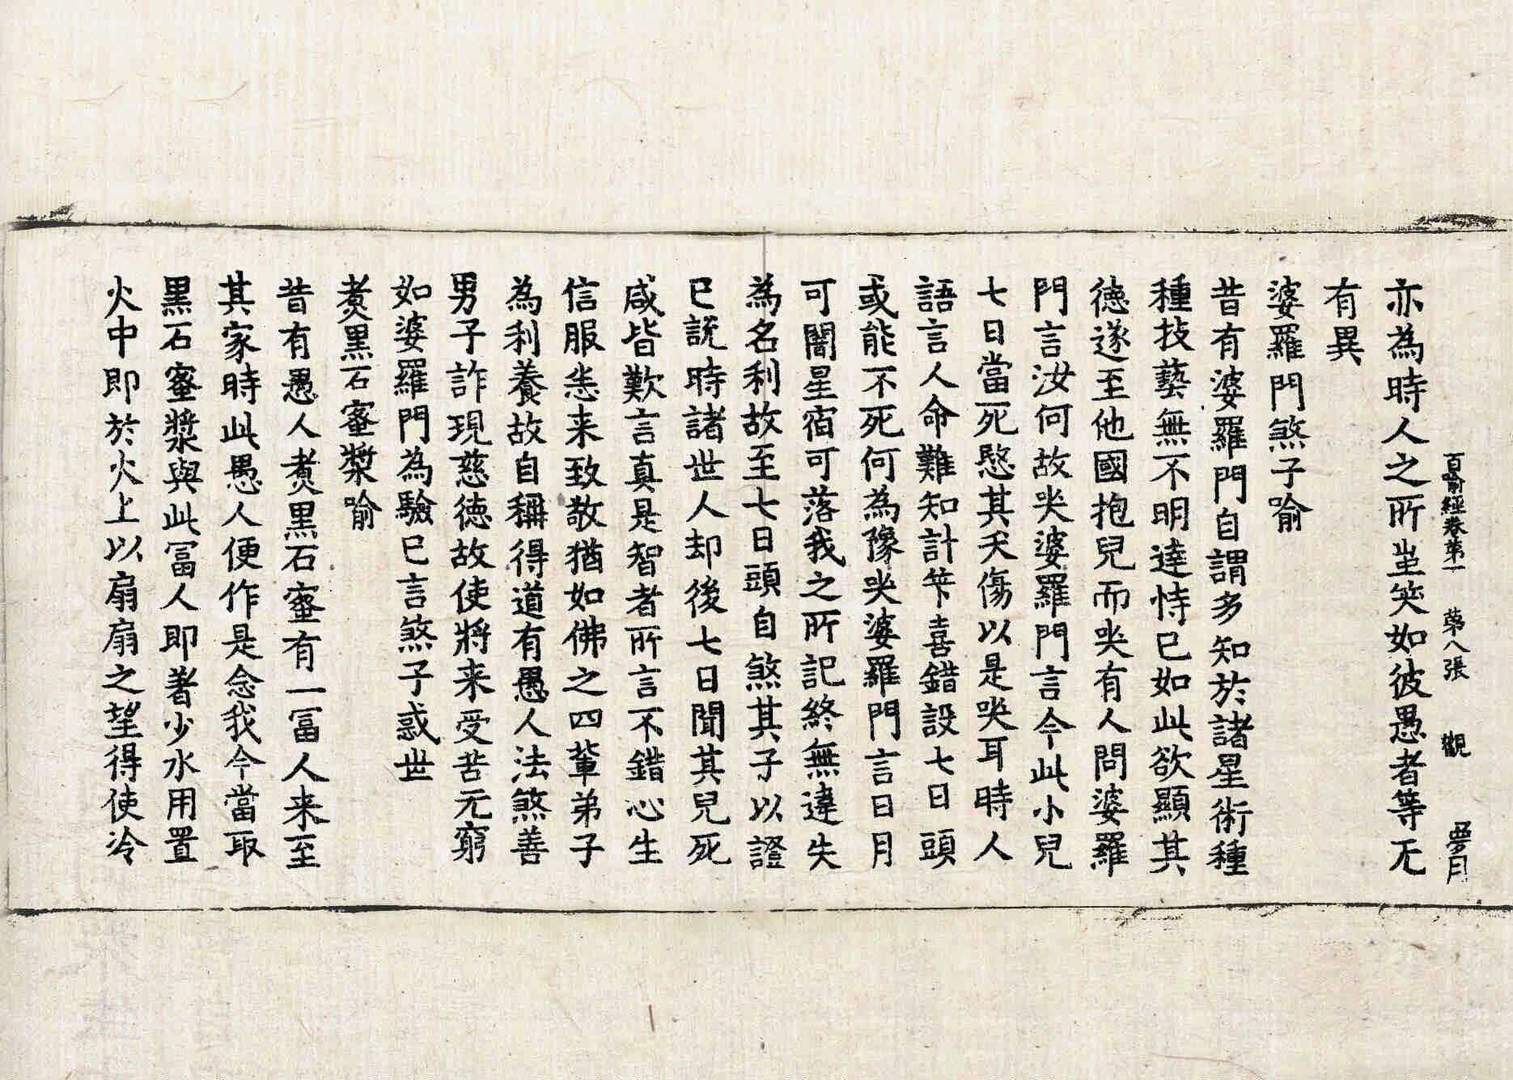 百喻經卷第一　第八張　觀　夢月
亦為時人之所𡊄笑如彼愚者等无
有異
婆羅門煞子喻
昔有婆羅門自謂多知於諸星術種
種技藝無不明達恃已如此欲顯其
德遂至他國抱兒而哭有人問婆羅
門言汝何故哭婆羅門言今此小兒
七日當死愍其夭傷以是哭耳時人
語言人命難知計筭喜錯設七日頭
或能不死何為豫哭婆羅門言日月
可闇星宿可落我之所記終無違失
為名利故至七日頭自煞其子以證
已說時諸世人却後七日聞其兒死
咸皆歎言真是智者所言不錯心生
信服悉来致敬猶如佛之四輩弟子
為利養故自稱得道有愚人法煞善
男子詐現慈德故使將来受苦无窮
如婆羅門為驗已言煞子惑世
煑黑石蜜漿喻
昔有愚人煑黑石蜜有一冨人来至
其家時此愚人便作是念我今當取
黑石蜜漿與此冨人即著少水用置
火中即於火上以扇扇之望得使冷